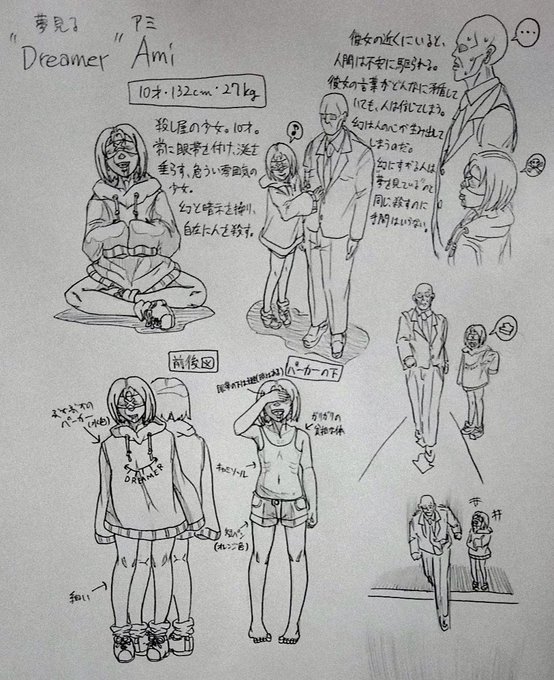 夢見る アミ
"Dreamer" Ami
10才・132cm・27kg
殺し屋の少女。10才。
常に眼帯を付け、涎を
垂らす、危うい雰囲気の
少女。
幻と暗示を操り、
自在に人を殺す。
彼女の近くにいると、
人間は不安に駆られる。
彼女の言葉がどんなに矛盾して
いても、人は信じてしまう。
幻は人の心が生み出して
しまうのだ。
幻にすがる人は
夢を見ているのと
同じ。殺すのに
手間はいらない。
前後図
パーカーの下
パーカー
(水色)
DREAMER
ガリガリの
貧相な体
キャミソール
短パン
(オレンジ色)
細い